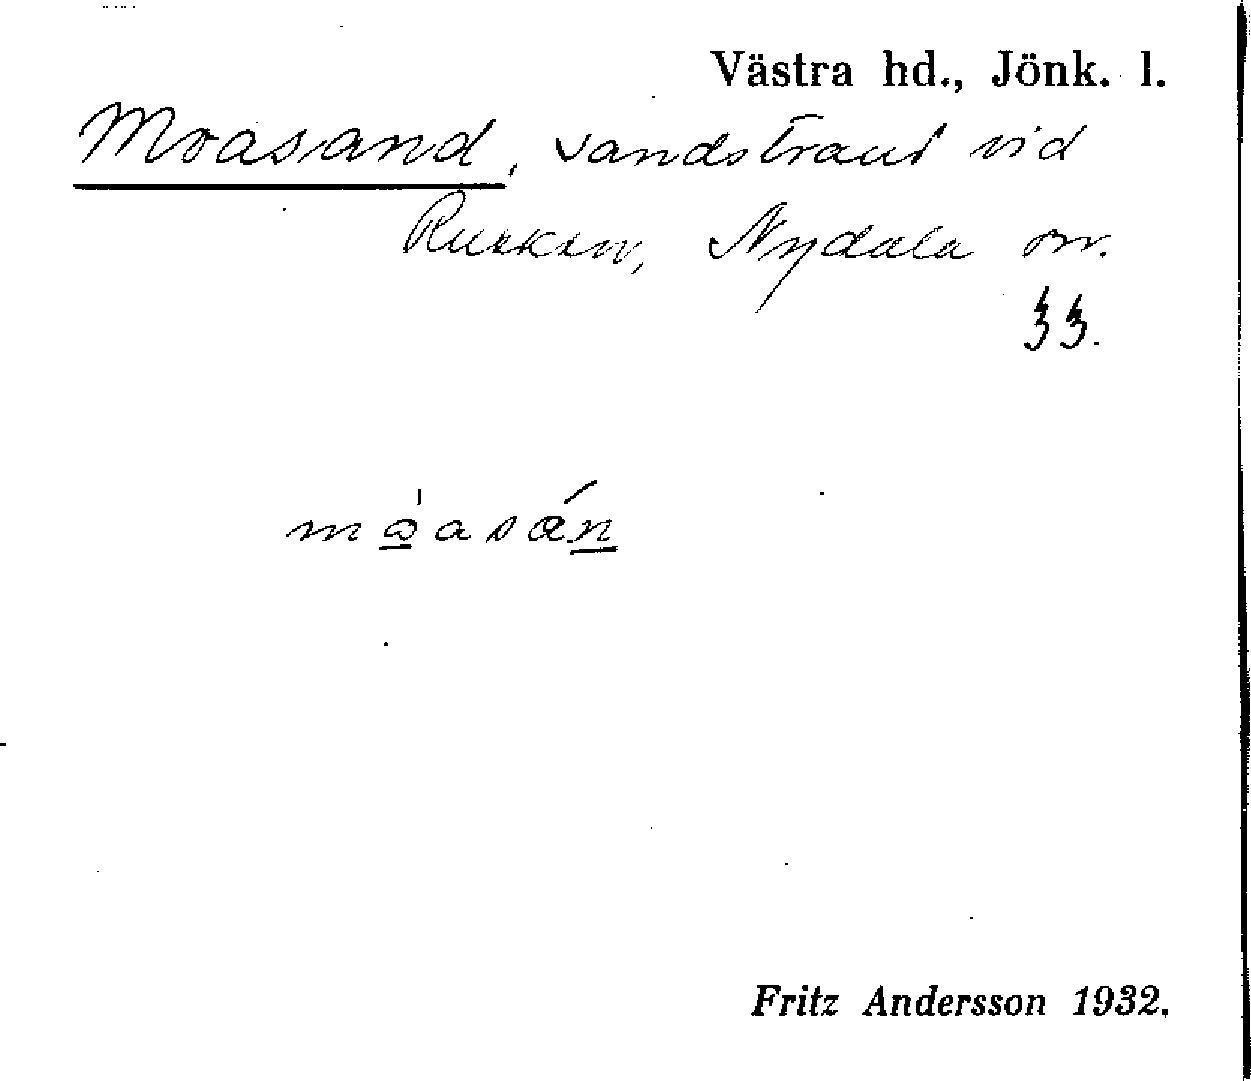 Västra hd., Jönk. l.
Moasand, sandstrand vid
Rusken, Nydala sn.
Fritz Andersson 1932.